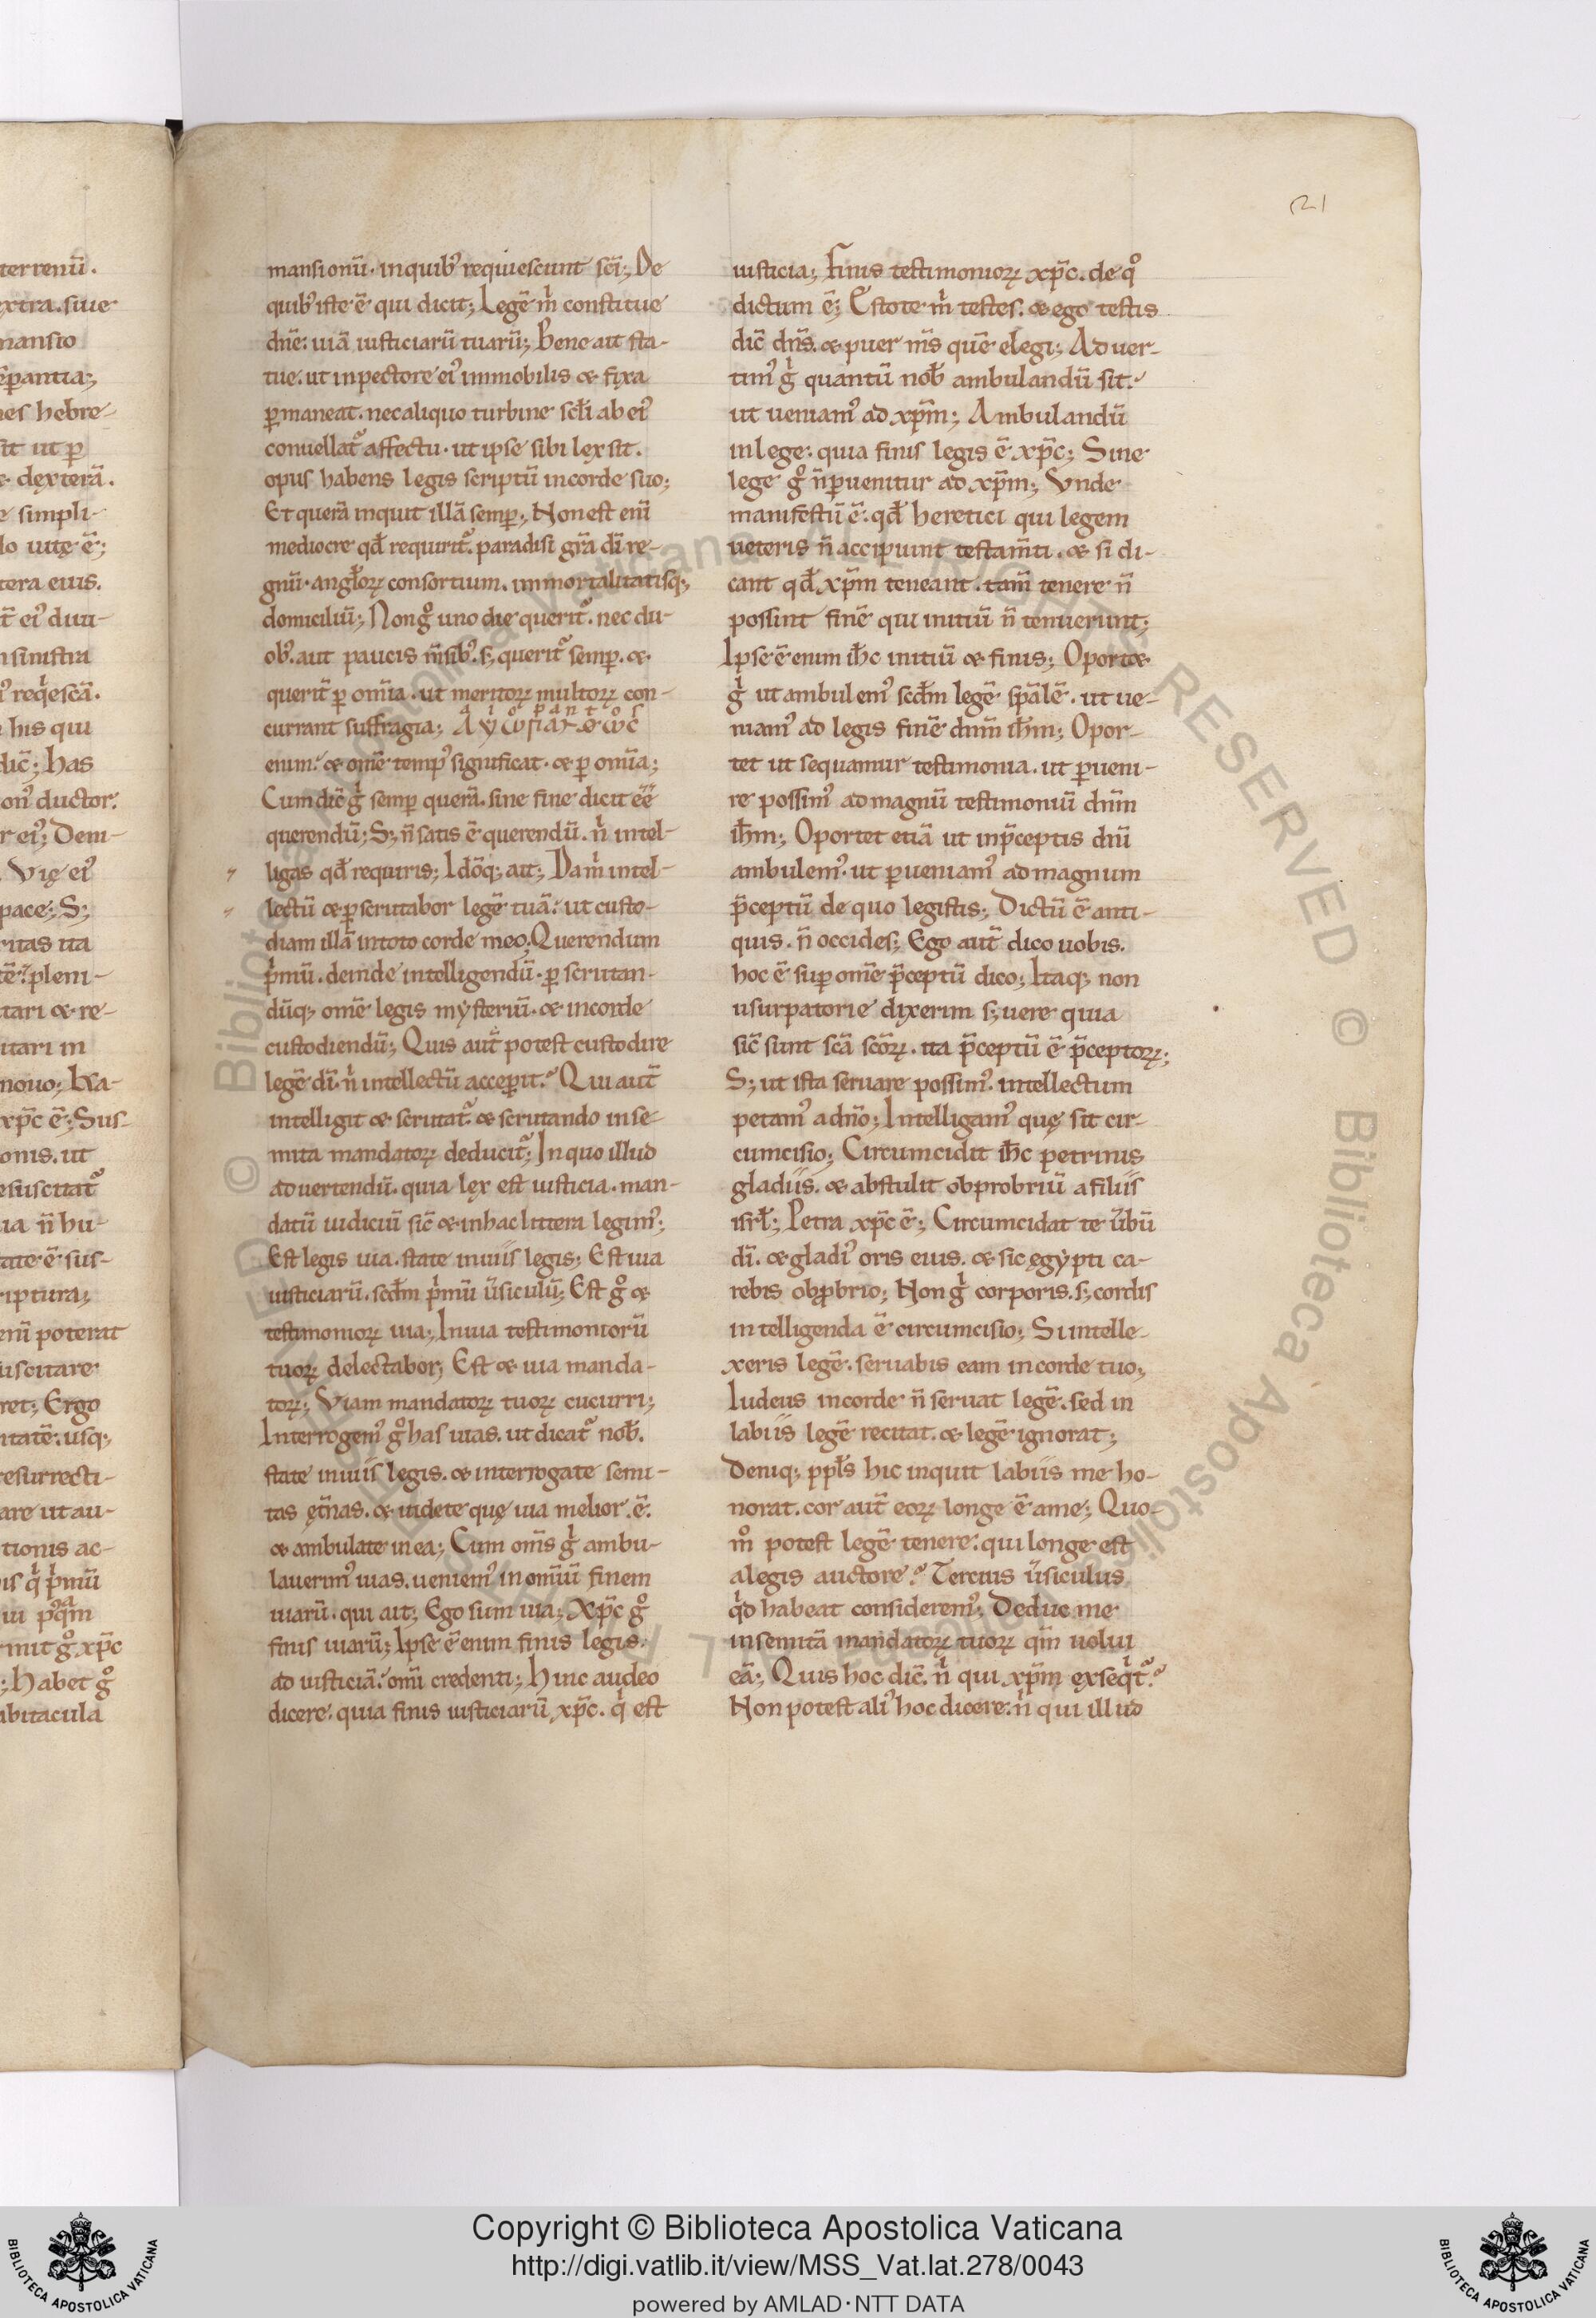 terrenū.
extra. siue
mansio
hebre-
sit ut ꝑ
dexterā.
simpli-
uitę ē;
tera eius.
ei᾽ diui-
sinistra
his qui
dic̄; has
ductor.
ei᾽; Deni-
Vię ei᾽
pace; S;
ritas ita
pleni-
tari & re-
itari in
nouo; Exa-
xp̄c ē; Sus-
onis. ut
esuscitat᷑
ia n̄ hu-
tate ē sus-
riptura;
enī poterat
uscitare
ret; Ergo
usq;
resurrecti-
are ut au-
tionis ac-
mit gͦ xp̄c
; habet gͦ
abitacula
21
mansionū. in quib᾽ requiescunt sc̄i; De
quib᾽ iste ē qui dicit; Legē m̍ constitue
dn̄e. uiā iusticiarū tuarū; Bene ait sta-
tue. ut in pectore ei᾽ immobilis & fixa
ꝑmaneat. nec aliquo turbine sc̄li ab ei᾽
conuellat᷑ affectu. ut ipse sibi lex sit.
opus habens legis scriptū in corde suo;
Et querā inquit illā semꝑ; Non est enī
mediocre qđ requirit᷑. paradisi gr̄a dī re-
gnū. angl̄oꝝ consortium. immortalitatisq;
domiciliū; Non gͦ uno die querit᷑. nec du-
ob᾽. aut paucis m̄sib᾽. s; querit᷑ semꝑ. &
querit᷑ ꝑ om̄ia. ut meritoꝝ multoꝝ con-
currant suffragia;
enim. & om̄e temp᾽ significat. & ꝑ om̄ia;
Cum dic̄ g̍ semꝑ querā. sine fine dicit ēē
querendū; S; n̄ satis ē querendū. n̍ intel-
ligas qđ requiris; Idōq; ait; Da m̍ intel-
lectū & ꝑscrutabor legē tuā. ut custo-
diam illā in toto corde meo; Querendum
p̍mū. deinde intelligendū. ꝑscrutan-
dūq; om̄e legis mysteriū. & in corde
custodiendū; Quis aut̄ potest custodire
legē dī. n̍ intellectū acceꝑit? Qui aut̄
intelligit & scrutat᷑. & scrutando in se-
mita mandatoꝝ deducit᷑; In quo illud
aduertendū. quia lex est iusticia. man-
datū iudiciū sic̄ & in hac littera legim᾽;
Est legis uia. state in uiis legis; Est uia
iusticiarū. scđm p̍mū ūsiculū; Est gͦ &
testimonioꝝ uia; In uia testimoniorū
tuoꝝ delectabor; Est & uia manda-
toꝝ; Viam mandatoꝝ tuoꝝ cucurri;
Interrogem᾽ gͦ has uias. ut dicat᷑ nob̄.
state in uiis legis. & interrogate semi-
tas ęt̄nas. & uidete quę uia melior ē.
& ambulate in ea; Cum om̄s g̍ ambu-
lauerim᾽ uias. ueniem᾽ in om̄iū finem
uiarū. qui ait; Ego sum uia; Xp̄c gͦ
finis uiarū; Ipse ē enim finis legis.
ad iusticiā. om̄i credenti; Hinc audeo
dicere. quia finis iusticiarū xp̄c. q̍ est
iusticia; Finis testimonioꝝ xp̄c. de qͦ
dictum ē; Estote m̍ testes. & ego testis
dic̄ dn̄s. & puer m̄s quē elegi; Aduer-
tim᾽ g̍ quantū nob̄ ambulandū sit.
ut ueniam᾽ ad xp̄m; Ambulandū
in lege. quia finis legis ē xp̄c; Sine
lege gͦ n̄ ꝑuenitur ad xp̄m; Vnde
manifestū ē. qđ heretici qui legem
ueteris n̄ accipiunt testam̄ti. & si di-
cant qđ xp̄m teneant. tam̄ tenere n̄
possint finē qui initiū n̄ tenuerunt;
Ipse ē enim ih̄c initiū & finis; Oport&
g̍ ut ambulem᾽ scđm legē sp̄alē. ut ue-
niam᾽ ad legis finē dn̄m ih̄m; Opor-
tet ut sequamur testimonia. ut ꝑueni-
re possim᾽ ad magnū testimoniū dn̄m
ih̄m; Oportet etiā ut in p̄ceptis dn̄i
ambulem᾽. ut ꝑueniam᾽ ad magnum
p̄ceptū de quo legistis; Dictū ē anti-
quis. n̄ occides; Ego aut̄ dico uobis.
hoc ē suꝑ om̄e p̄ceptū dico; Itaq; non
usurpatorie dixerim s; uere quia
sic̄ sunt sc̄a sc̄oꝝ. ita p̄ceptū ē p̄ceptoꝝ;
S; ut ista seruare possim᾽. intellectum
petam᾽ a dn̄o; Intelligam᾽ quę sit cir-
cumcisio; Circumcidit ih̄c petrinis
gladiis. & abstulit obprobriū a filiis
isrl̄; Petra xp̄c ē; Circumcidat te ūbū
dī. & gladi᾽ oris eius. & sic ęgypti ca-
rebis obꝓbrio; Non g̍ corporis. s; cordis
intelligenda ē circumcisio; Si intelle-
xeris legē. seruabis eam in corde tuo;
Iudeus in corde n̄ seruat legē. sed in
labiis legē recitat. & legē ignorat;
Deniq; ppl̄s hic inquit labiis me ho-
norat. cor aut̄ eoꝝ longe ē a me; Quo-
mͦ potest legē tenere. qui longe est
a legis auctore? Tercius ūsiculus
q̍d habeat considerem᾽; Deduc me
in semitā mandatoꝝ tuoꝝ qm̄ uolui
eā; Quis hoc dic̄. n̍ qui xp̄m exseq̍t᷑?
Non potest ali᾽ hoc dicere. n̍ qui illud
© Biblioteca Apostolica Vaticana ALL RIGHTS RESERVED © Biblioteca Apostolica Vaticana ALL RIGHTS RESERVED
Copyright © Biblioteca Apostolica Vaticana
http://digi.vatlib.it/view/MSS_Vat.lat.278/0043
powered by AMLAD·NTT DATA
BIBLIOTECA APOSTOLICA VATICANA
BIBLIOTECA APOSTOLICA VATICANA